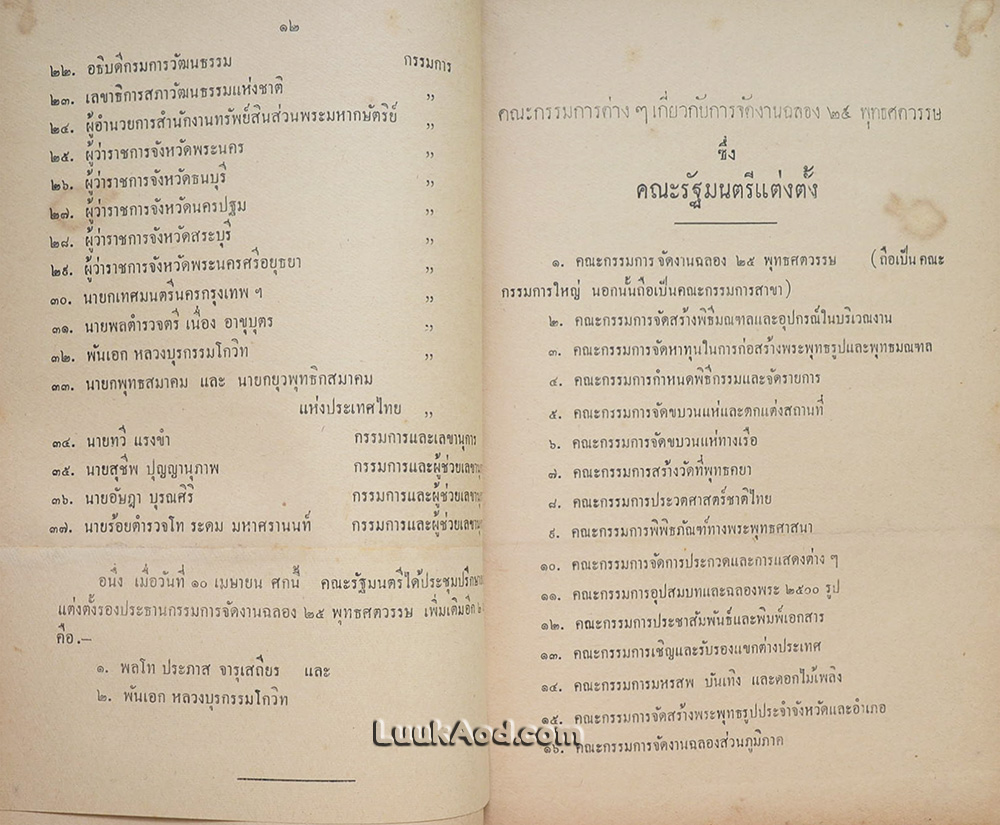 ๑๒
๒๒. อธิบดีกรมการวัฒนธรรม กรรมการ
๒๓. เลขาธิการสภาวัฒนธรรมแห่งชาติ ,,
๒๔. ผู้อำนวยการสำนักงานทรัพย์สินส่วนพระมหากษัตริย์ ,,
๒๕. ผู้ว่าราชการจังหวัดพระนคร ,,
๒๖. ผู้ว่าราชการจังหวัดธนบุรี ,,
๒๗. ผู้ว่าราชการจังหวัดนครปฐม ,,
๒๘. ผู้ว่าราชการจังหวัดสระบุรี ,,
๒๙. ผู้ว่าราชการจังหวัดพระนครศรีอยุธยา ,,
๓๐. นายกเทศมนตรีนครกรุงเทพ ฯ ,,
๓๑. นายพลตำรวจตรี เนื่อง อาขุบุตร ,,
๓๒. พันเอก หลวงบุรกรรมโกวิท ,,
๓๓. นายกพุทธสมาคม และ นายกยุวพุทธิกสมาคม
แห่งประเทศไทย ,,
๓๔. นายทวี แรงขำ กรรมการและเลขานุการ
๓๕. นายสุชีพ ปุญญานุภาพ กรรมการและผู้ช่วยเลขานุ
๓๖. นายอัษฎา บุรณศิริ กรรมการและผู้ช่วยเลขานุ
๓๗. นายร้อยตำรวจโท ระดม มหาศรานนท์ กรรมการและผู้ช่วยเลขานุ
อนึ่ง เมื่อวันที่ ๑๐ เมษายน ศกนี้ คณะรัฐมนตรีได้ประชุมปรึกษา
แต่งตั้งรองประธานกรรมการจัดงานฉลอง ๒๕ พุทธศตวรรษ เพิ่มเติมอีก ๒
คือ.—
๑. พลโท ประภาส จารุเสถียร และ
๒. พันเอก หลวงบุรกรรมโกวิท
คณะกรรมการต่าง ๆ เกี่ยวกับการจัดงานฉลอง ๒๕ พุทธศตวรรษ
ซึ่ง
คณะรัฐมนตรีแต่งตั้ง
๑. คณะกรรมการจัดงานฉลอง ๒๕ พุทธศตวรรษ (ถือเป็นคณะ
กรรมการใหญ่ นอกนั้นถือเป็นคณะกรรมการสาขา)
๒. คณะกรรมการจัดสร้างพิธีมณฑลและอุปกรณ์ในบริเวณงาน
๓. คณะกรรมการจัดหาทุนในการก่อสร้างพระพุทธรูปและพุทธมณฑล
๔. คณะกรรมการกำหนดพิธีกรรมและจัดรายการ
๕. คณะกรรมการจัดขบวนแห่และตกแต่งสถานที่
๖. คณะกรรมการจัดขบวนแห่ทางเรือ
๗. คณะกรรมการสร้างวัดที่พุทธคยา
๘. คณะกรรมการประวตศาสตร์ชาติไทย
๙. คณะกรรมการพิพิธภัณฑ์ทางพระพุทธศาสนา
๑๐. คณะกรรมการจัดการประกวดและการแสดงต่าง ๆ
๑๑. คณะกรรมการอุปสมบทและฉลองพระ ๒๕๐๐ รูป
๑๒. คณะกรรมการประชาสัมพันธ์และพิมพ์เอกสาร
๑๓. คณะกรรมการเชิญและรับรองแขกต่างประเทศ
๑๔. คณะกรรมการมหรสพ บันเทิง และดอกไม้เพลิง
๑๕. คณะกรรมการจัดสร้างพระพุทธรูปประจำจังหวัดและอำเภอ
๑๖. คณะกรรมการจัดงานฉลองส่วนภูมิภาค
LuukAod.com